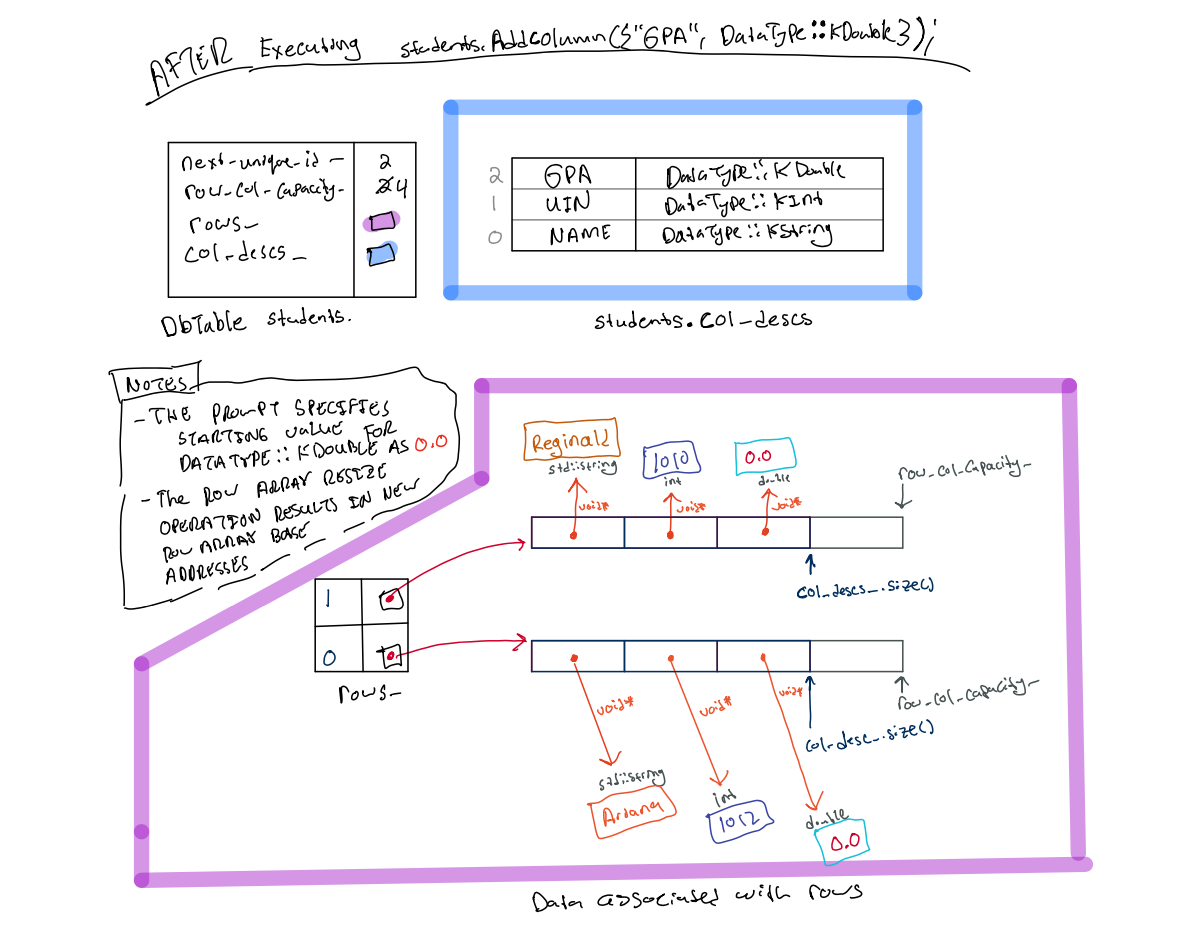 AFTER Executing students.AddColumn({"GPA", DataType::KDouble});
next-unique-id - 2
row-col-capacity- 2 4
rows_
col-descs_
DbTable students.
2 GPA DataType::KDouble
1 UIN DataType::KInt
0 NAME DataType::KString
students.col-descs
NOTES
- THE PROMPT SPECIFIES
STARTING VALUE FOR
DATATYPE::KDOUBLE AS 0.0
- The ROW ARRAY RESIZE
OPERATION RESULTS IN NEW
ROW ARRAY BASE
ADDRESSES
Reginald
std::string
void*
1010
int
void*
0.0
double
void*
row-col-capacity-
col-descs_.size()
1
0
rows_
void*
void*
void*
row-col-capacity-
col-desc_.size()
std::string
Ariana
int
1012
double
0.0
Data associated with rows